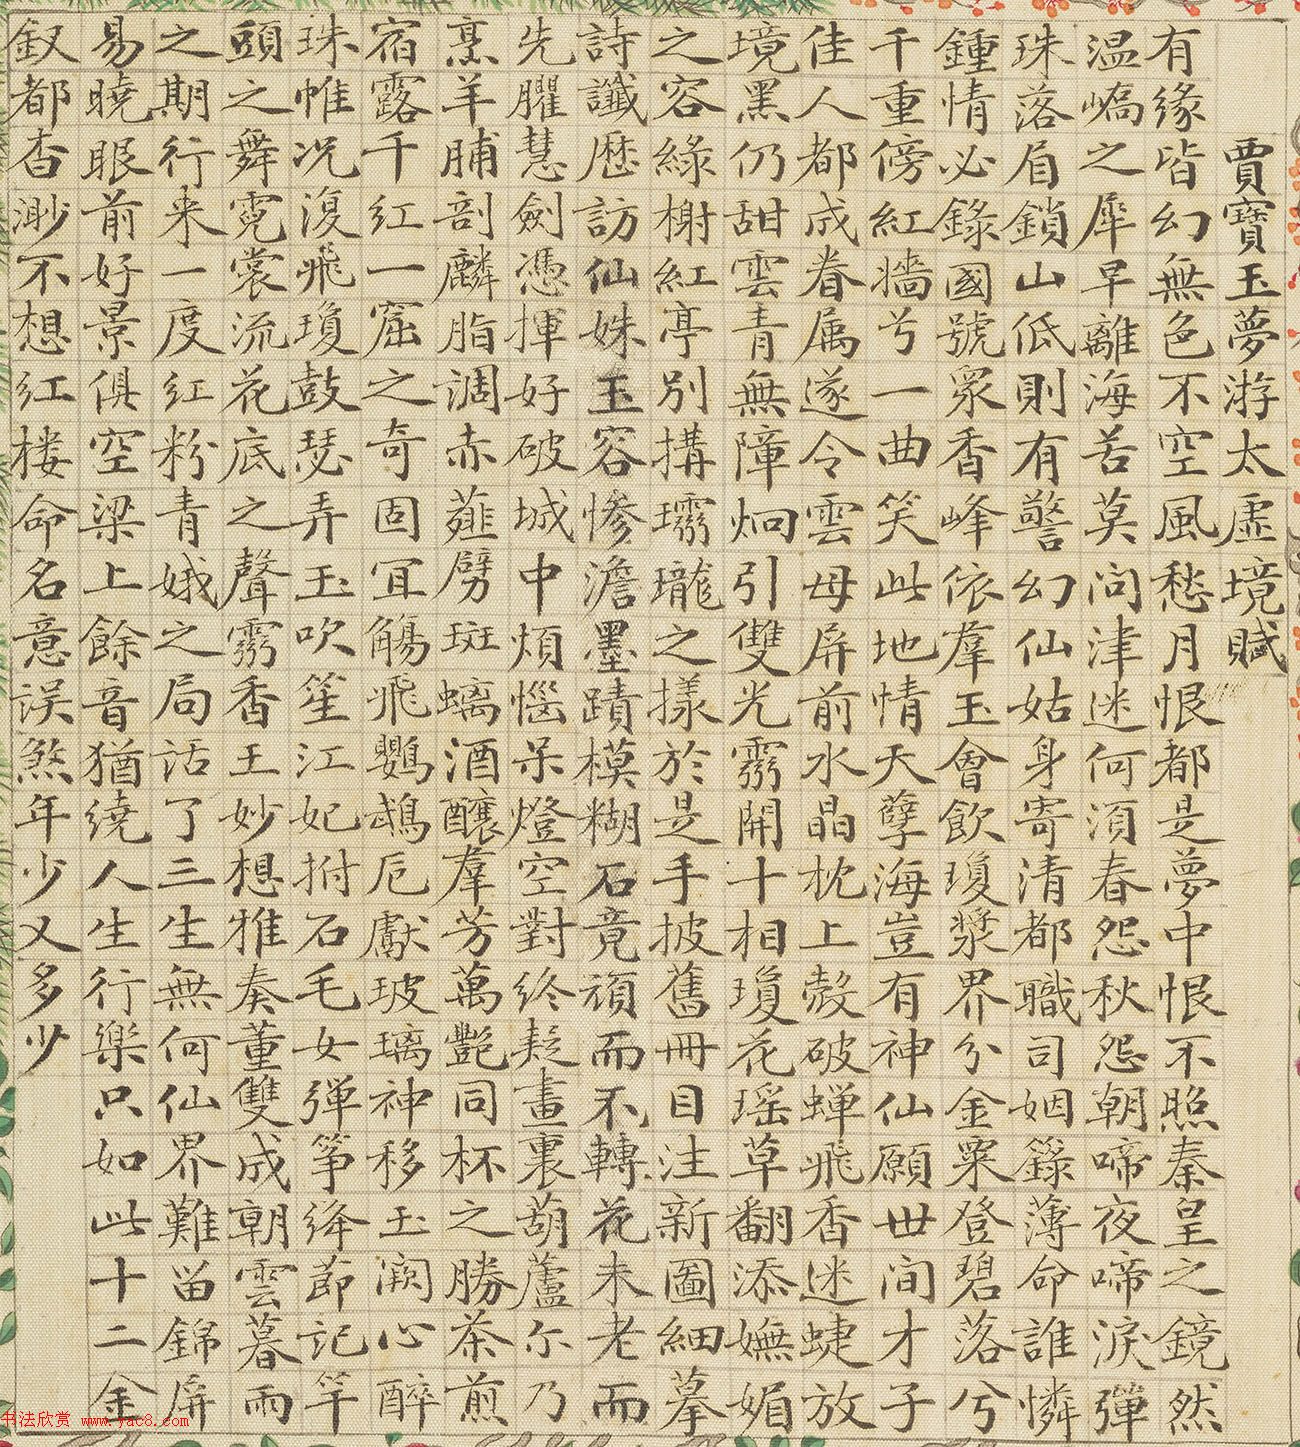 賈寶玉夢游太虛境賦
有緣皆幻無色不空風愁月恨都是夢中恨不照秦皇之鏡然
温嶠之犀早離海苦莫问津迷何須春怨秋怨朝啼夜啼淚彈
珠落眉鎖山低則有警幻仙姑身寄清都職司姻籙薄命誰憐
鍾情必錄國號眾香峰依羣玉會飲瓊漿界分金粟登碧落兮
千重傍紅牆兮一曲笑此地情天孽海豈有神仙願世间才子
佳人都成眷属遂令雲母屏前水晶枕上殼破蝉飛香迷蜨放
境黑仍甜雲青無障炯引雙光霱開十相瓊花瑶草翻添嫵媚
之容綠榭紅亭別搆瓏之様於是手披舊冊目注新圖細摹
詩讖歴訪仙姝玉容惨澹墨蹟模糊石竟頑而不轉花未老而
先臞慧劍憑揮好破城中煩惱呆燈空對终疑畫裏葫蘆尔乃
烹羊脯剖麟脂調赤薤劈斑螭酒釀羣芳萬艷同杯之勝茶煎
宿露千红一窟之奇固宜觴飛鸚鵡卮獻玻璃神移玉阙心醉
珠帷况復飛瓊鼓瑟弄玉吹笙江妃拊石毛女弹筝绛節記竿
頭之舞霓裳流花底之聲霱香王妙想雅奏董雙成朝雲暮雨
之期行来一度红粉青娥之局话了三生無何仙界難留錦屏
易曉眼前好景俱空梁上餘音猶繞人生行樂只如此十二金
釵都杳渺不想红楼命名意误煞年少又多少
书法欣赏 www.yac8.com